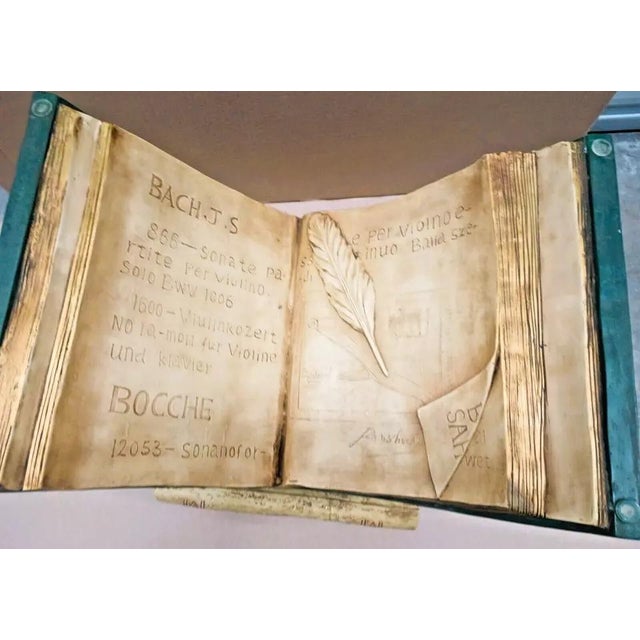 BACH.J.S
866-Sonate Pa-
rtite Per Violino.
Solo BWV 1006
1600-Viulinkozert
NO la-moll für Violine
Und klavier
BOCCHE
12053-Sonanofor-
Per Violno e
inuo Band sze-
SAH
wet